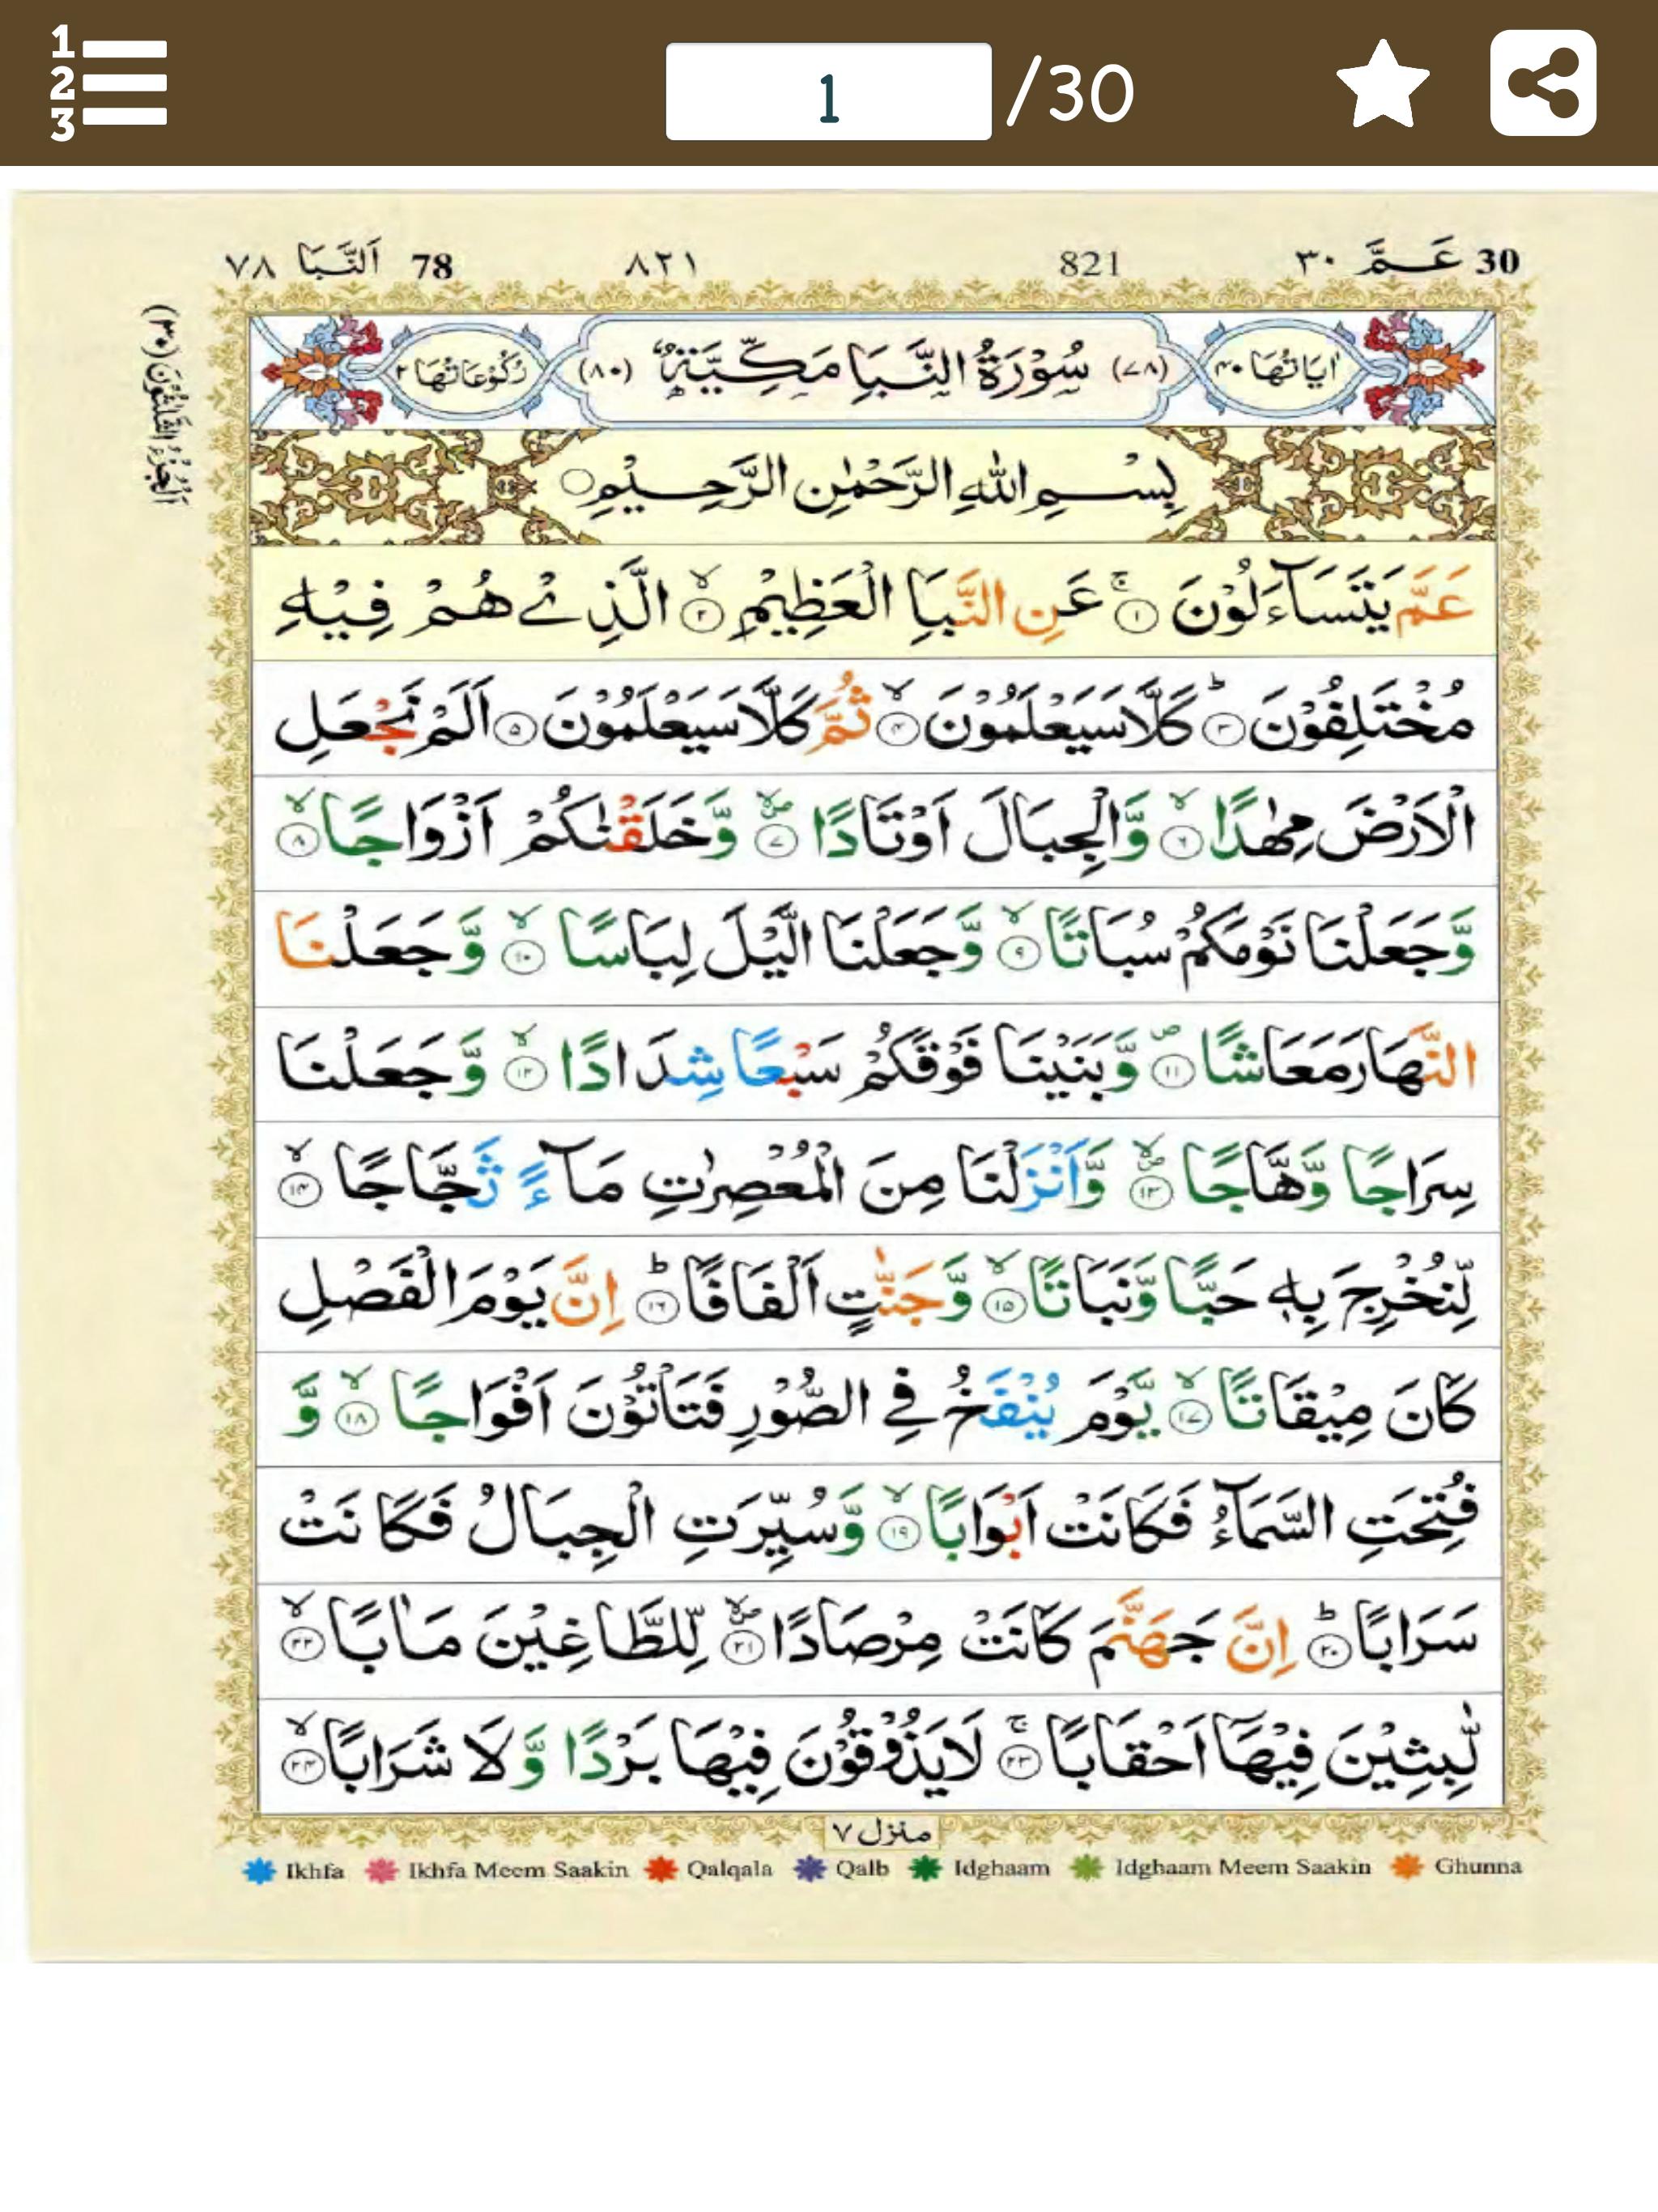 1
2
3
1 /30
30 عَـمَّ ٣٠ 821 ٨٢١ 78 اَلنَّبَا ٧٨
اَلْجُزْءُ الثَّلٰثُوْنَ (٣٠)
اٰيَاتُهَا ٤٠ (٧٨) سُوْرَةُ النَّبَاِ مَكِّيَّةٌ (٨٠) رُكُوْعَاتُهَا ٢
بِسْمِ اللّٰهِ الرَّحْمٰنِ الرَّحِيْمِ
عَمَّ يَتَسَآءَلُوْنَ ۚ‏ ﴿١﴾ عَنِ النَّبَاِ الْعَظِيْمِۙ‏ ﴿٢﴾ الَّذِىْ هُمْ فِيْهِ
مُخْتَلِفُوْنَؕ‏ ﴿٣﴾ كَلَّا سَيَعْلَمُوْنَۙ‏ ﴿٤﴾ ثُمَّ كَلَّا سَيَعْلَمُوْنَ‏ ﴿٥﴾ اَلَمْ نَجْعَلِ
الْاَرْضَ مِهٰدًاۙ‏ ﴿٦﴾ وَّالْجِبَالَ اَوْتَادًاۙ‏ ﴿٧﴾ وَّخَلَقْنٰكُمْ اَزْوَاجًاۙ‏ ﴿٨﴾
وَّجَعَلْنَا نَوْمَكُمْ سُبَاتًاۙ‏ ﴿٩﴾ وَّجَعَلْنَا الَّيْلَ لِبَاسًاۙ‏ ﴿١٠﴾ وَّجَعَلْنَا
النَّهَارَ مَعَاشًا‏ ﴿١١﴾ وَّبَنَيْنَا فَوْقَكُمْ سَبْعًا شِدَادًاۙ‏ ﴿١٢﴾ وَّجَعَلْنَا
سِرَاجًا وَّهَّاجًاۙ‏ ﴿١٣﴾ وَّاَنْزَلْنَا مِنَ الْمُعْصِرٰتِ مَآءً ثَجَّاجًاۙ‏ ﴿١٤﴾
لِّنُخْرِجَ بِهٖ حَبًّا وَّنَبَاتًاۙ‏ ﴿١٥﴾ وَّجَنّٰتٍ اَلْفَافًاؕ‏ ﴿١٦﴾ اِنَّ يَوْمَ الْفَصْلِ
كَانَ مِيْقَاتًاۙ‏ ﴿١٧﴾ يَّوْمَ يُنْفَخُ فِى الصُّوْرِ فَتَاْتُوْنَ اَفْوَاجًاۙ‏ ﴿١٨﴾ وَّ
فُتِحَتِ السَّمَآءُ فَكَانَتْ اَبْوَابًاۙ‏ ﴿١٩﴾ وَّسُيِّرَتِ الْجِبَالُ فَكَانَتْ
سَرَابًاؕ‏ ﴿٢٠﴾ اِنَّ جَهَنَّمَ كَانَتْ مِرْصَادًاۙ‏ ﴿٢١﴾ لِّلطَّاغِيْنَ مَاٰبًاۙ‏ ﴿٢٢﴾
لّٰبِثِيْنَ فِيْهَاۤ اَحْقَابًاۚ‏ ﴿٢٣﴾ لَا يَذُوْقُوْنَ فِيْهَا بَرْدًا وَّلَا شَرَابًاۙ‏ ﴿٢٤﴾
منزل ٧
Ikhfa Ikhfa Meem Saakin Qalqala Qalb Idghaam Idghaam Meem Saakin Ghunna